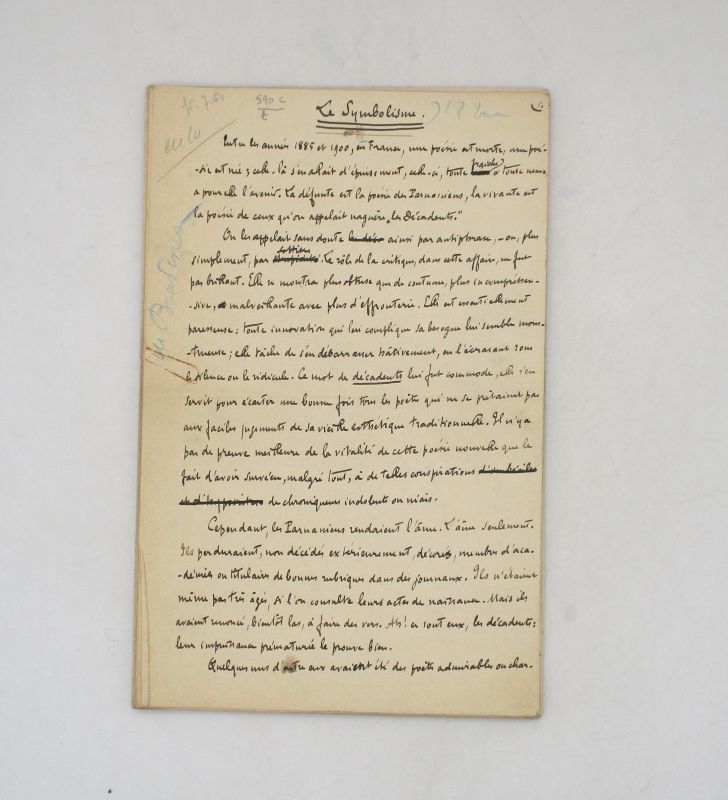 590 c
Le Symbolisme.
Entre les années 1885 et 1900, en France, une poésie est morte, une poé-
-sie est née ; celle-là s'en allait d'épuisement, celle-ci, toute fraîche & toute neuve,
a pour elle l'avenir. La défunte est la poésie des Parnassiens, la vivante est
la poésie de ceux qu'on appelait naguère „les Décadents."
On les appelait sans doute ainsi par antiphrase, – ou, plus
simplement, par sottise. Le rôle de la critique, dans cette affaire, ne fut
pas brillant. Elle se montra plus obtuse que de coutume, plus incompréhen-
-sive, malveillante avec plus d'effronterie. Elle est essentiellement
paresseuse : toute innovation qui lui complique sa besogne lui semble mons-
-trueuse ; elle tâche de s'en débarrasser hâtivement, en l'écrasant sous
le silence ou le ridicule. Ce mot de décadents lui fut commode, elle s'en
servit pour écarter une bonne fois tous les poëtes qui ne se prêtaient pas
aux faciles jugements de sa vieille esthétique traditionnelle. Il n'y a
pas de preuve meilleure de la vitalité de cette poésie nouvelle que le
fait d'avoir survécu, malgré tout, à de telles conspirations d'imbéciles
de chroniqueurs indolents ou niais.
Cependant, les Parnassiens rendaient l'âme. L'âme seulement.
Ils perduraient, non décédés extérieurement, décorés, membres d'aca-
-démies ou titulaires de bonnes rubriques dans des journaux. Ils n'étaient
même pas très âgés, si l'on consulte leurs actes de naissance. Mais ils
avaient renoncé, bientôt las, à faire des vers. Ah! ce sont eux, les décadents :
leur impuissance prématurée le prouve bien.
Quelques uns d'entre eux avaient été des poëtes admirables ou char-